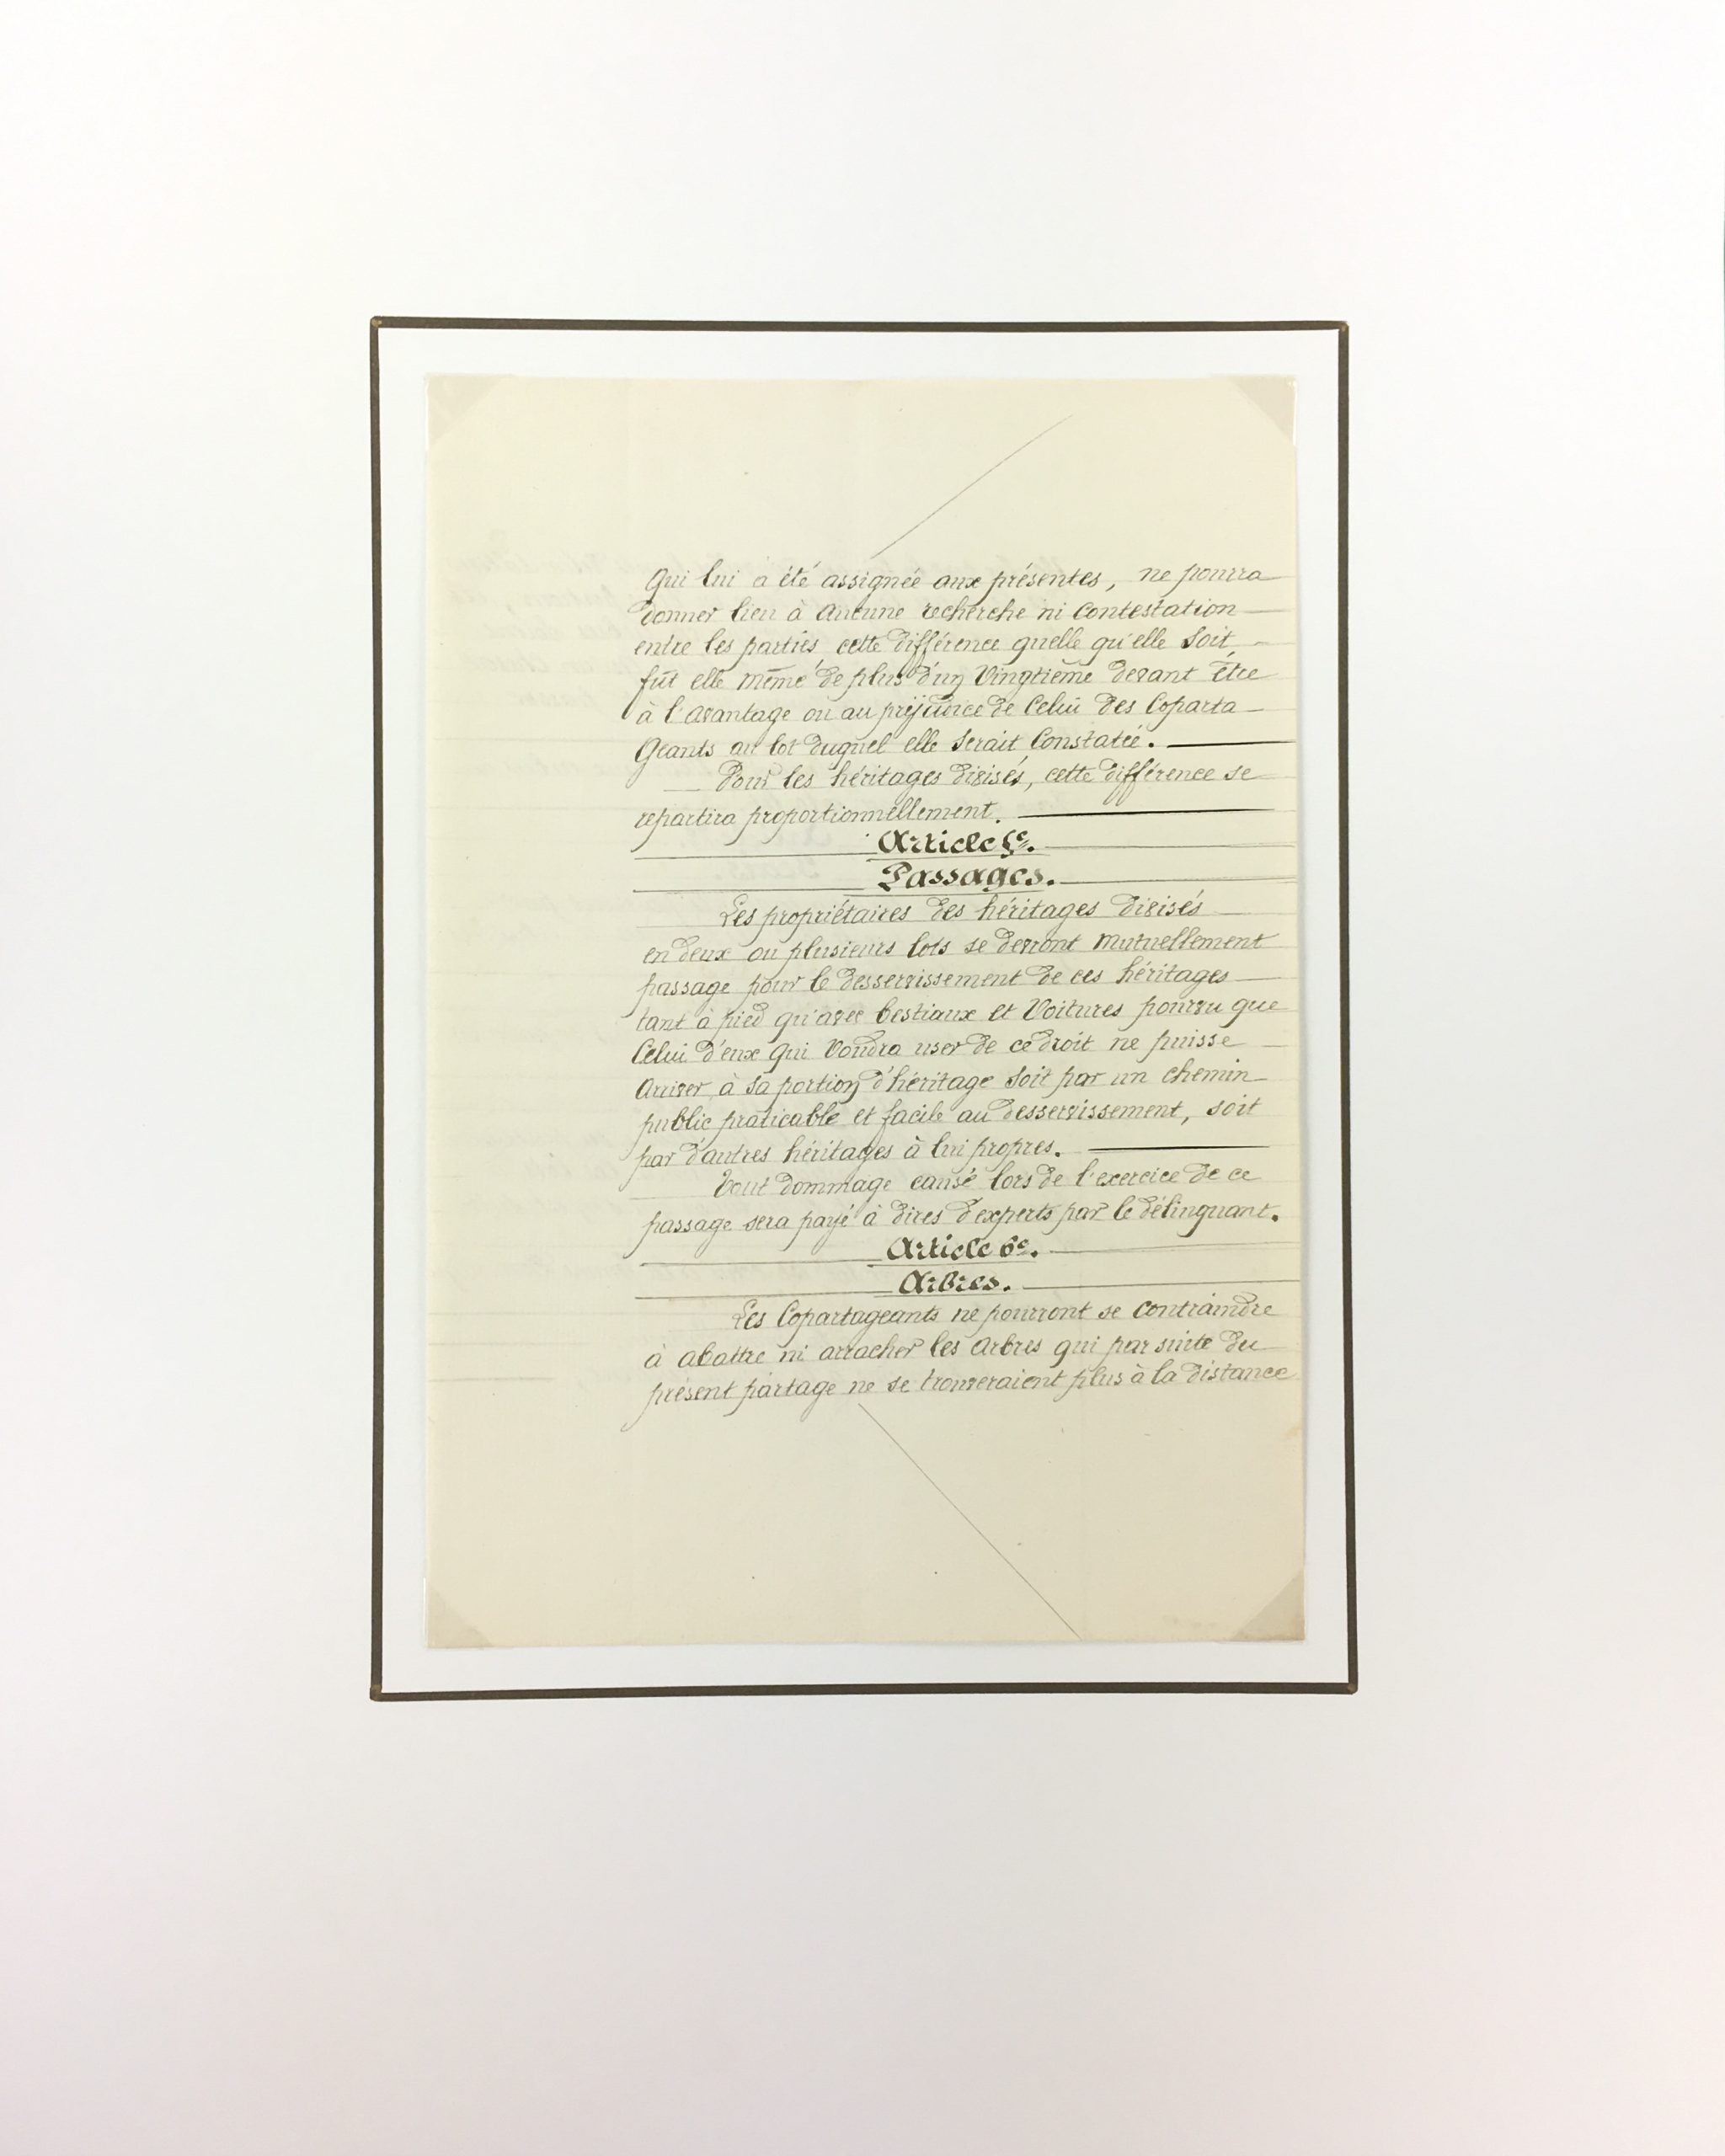 Qui lui a été assignée aux présentes, ne pourra
donner lieu à Aucune recherche ni Contestation
entre les parties cette différence quelle qu'elle Soit,
fût elle même de plus d'un Vingtième devant être
à l'Avantage ou au préjudice de Celui des Coparta
Geants au lot duquel elle Serait Constatée.
Pour les héritages divisés, cette différence se
repartira proportionnellement.
Article 5e.
Passages.
Les propriétaires des héritages divisés
en deux ou plusieurs lots se devront Mutuellement
passage pour le desservissement de ces héritages
tant à pied qu'avec bestiaux et Voitures pourvu que
Celui d'eux Qui Voudra user de ce droit ne puisse
Arriver à sa portion d'héritage Soit par un chemin
public praticable et facile au desservissement, soit
par d'autres héritages à lui propres.
Tout dommage causé lors de l'exercice de ce
passage sera payé à dires d'experts par le délinquant.
Article 6e.
Arbres.
Les Copartageants ne pourront se Contraindre
à Abattre ni arracher les Arbres qui par suite du
présent partage ne se trouveraient plus à la distance